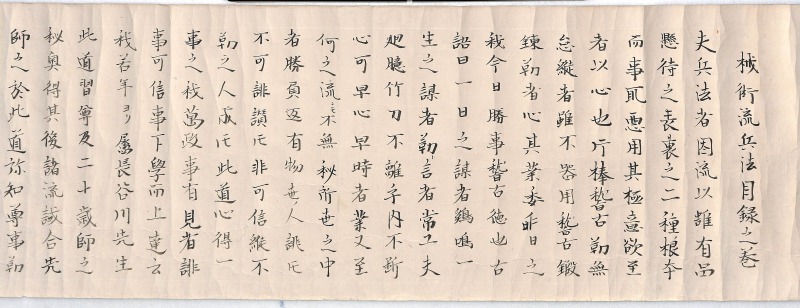 械術流兵法目録之巻
夫兵法者因流以雖有品
懸待之表裏之二種根本
而事爪悪用其極意欲至
者以心也片棒稽古勤無
怠縦者雖不器用稽古鍛
錬勤者心其業委非日之
我今日勝事稽古徳也古
語曰一日之謀者鶏鳴一
生之謀者勤言者常工夫
廻臆竹刀不離手内不断
心可早心早時者業又至
何之流ミ不無秘所世之中
者勝負返有物世ノ人誹氏
不可誹讃氏非可信縦不
勤之人成氏此道心得一
事之我萬政事有見者誹
事可信事下學而上達云
我若年ヨリ属長谷川先生
此道習尊及二十歳師之
秘奥得其後諸流試合先
師之於此道弥知尊事勤